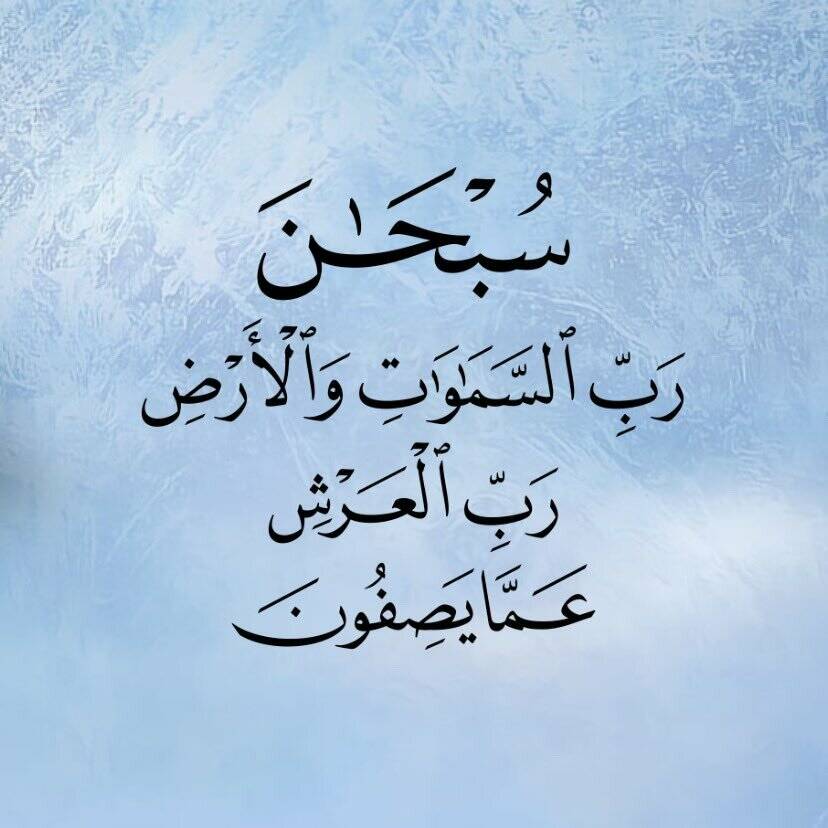 سُبْحَٰنَ
رَبِّ ٱلسَّمَٰوَٰتِ وَٱلْأَرْضِ
رَبِّ ٱلْعَرْشِ
عَمَّا يَصِفُونَ